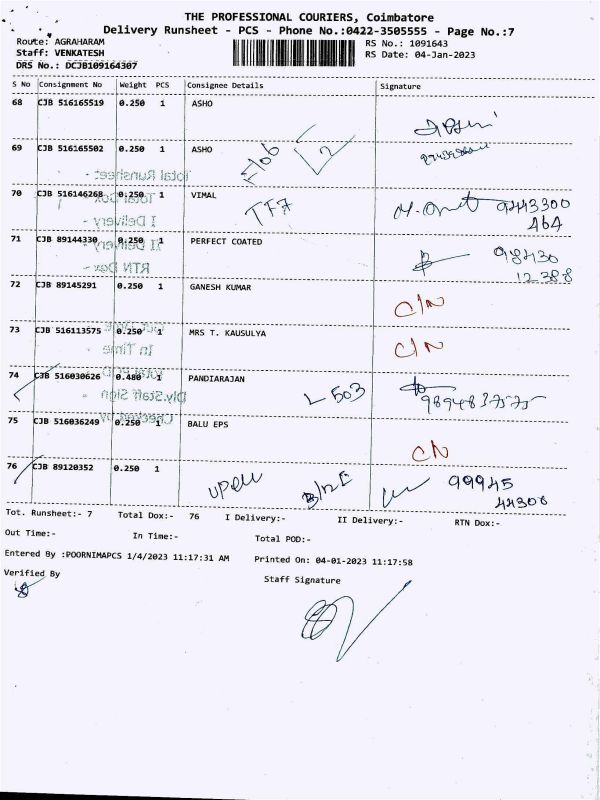 THE PROFESSIONAL COURIERS, Coimbatore
Delivery Runsheet - PCS - Phone No.:0422-3505555 - Page No.:7
Route: AGRAHARAM RS No.: 1091643
Staff: VENKATESH RS Date: 04-Jan-2023
DRS No.: DCJB109164307
S No Consignment No Weight PCS Consignee Details Signature
68 CJB 516165519 0.250 1 ASHO
69 CJB 516165502 0.250 1 ASHO
Total Runsheet -
70 CJB 516146268 0.250 1 VIMAL
TF7 9443300
464
I Delivery -
71 CJB 89144330 0.250 1 PERFECT COATED
II Delivery - 98430
12388
RTN Dox -
72 CJB 89145291 0.250 1 GANESH KUMAR
C/N
73 CJB 516113575 0.250 1 MRS T. KAUSULYA
In Time - C/N
74 CJB 516030626 0.480 1 PANDIARAJAN
L 503 9894837575
Dly.Staff Sign
75 CJB 516036249 0.250 1 BALU EPS
Checked by
CN
76 CJB 89120352 0.250 1
99945
44306
Tot. Runsheet:- 7 Total Dox:- 76 I Delivery:- II Delivery:- RTN Dox:-
Out Time:- In Time:- Total POD:-
Entered By :POORNIMAPCS 1/4/2023 11:17:31 AM Printed On: 04-01-2023 11:17:58
Verified By Staff Signature